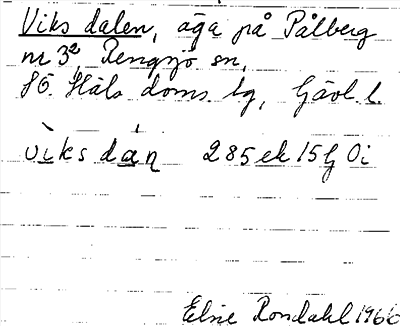 Viks dalen, äga på Pålberg
nr 3², Rengsjö sn,
SÖ Häls doms lg, Gävl. l.
vìks dán 285 ek 15 G Oi
Elsie Rondahl 1966